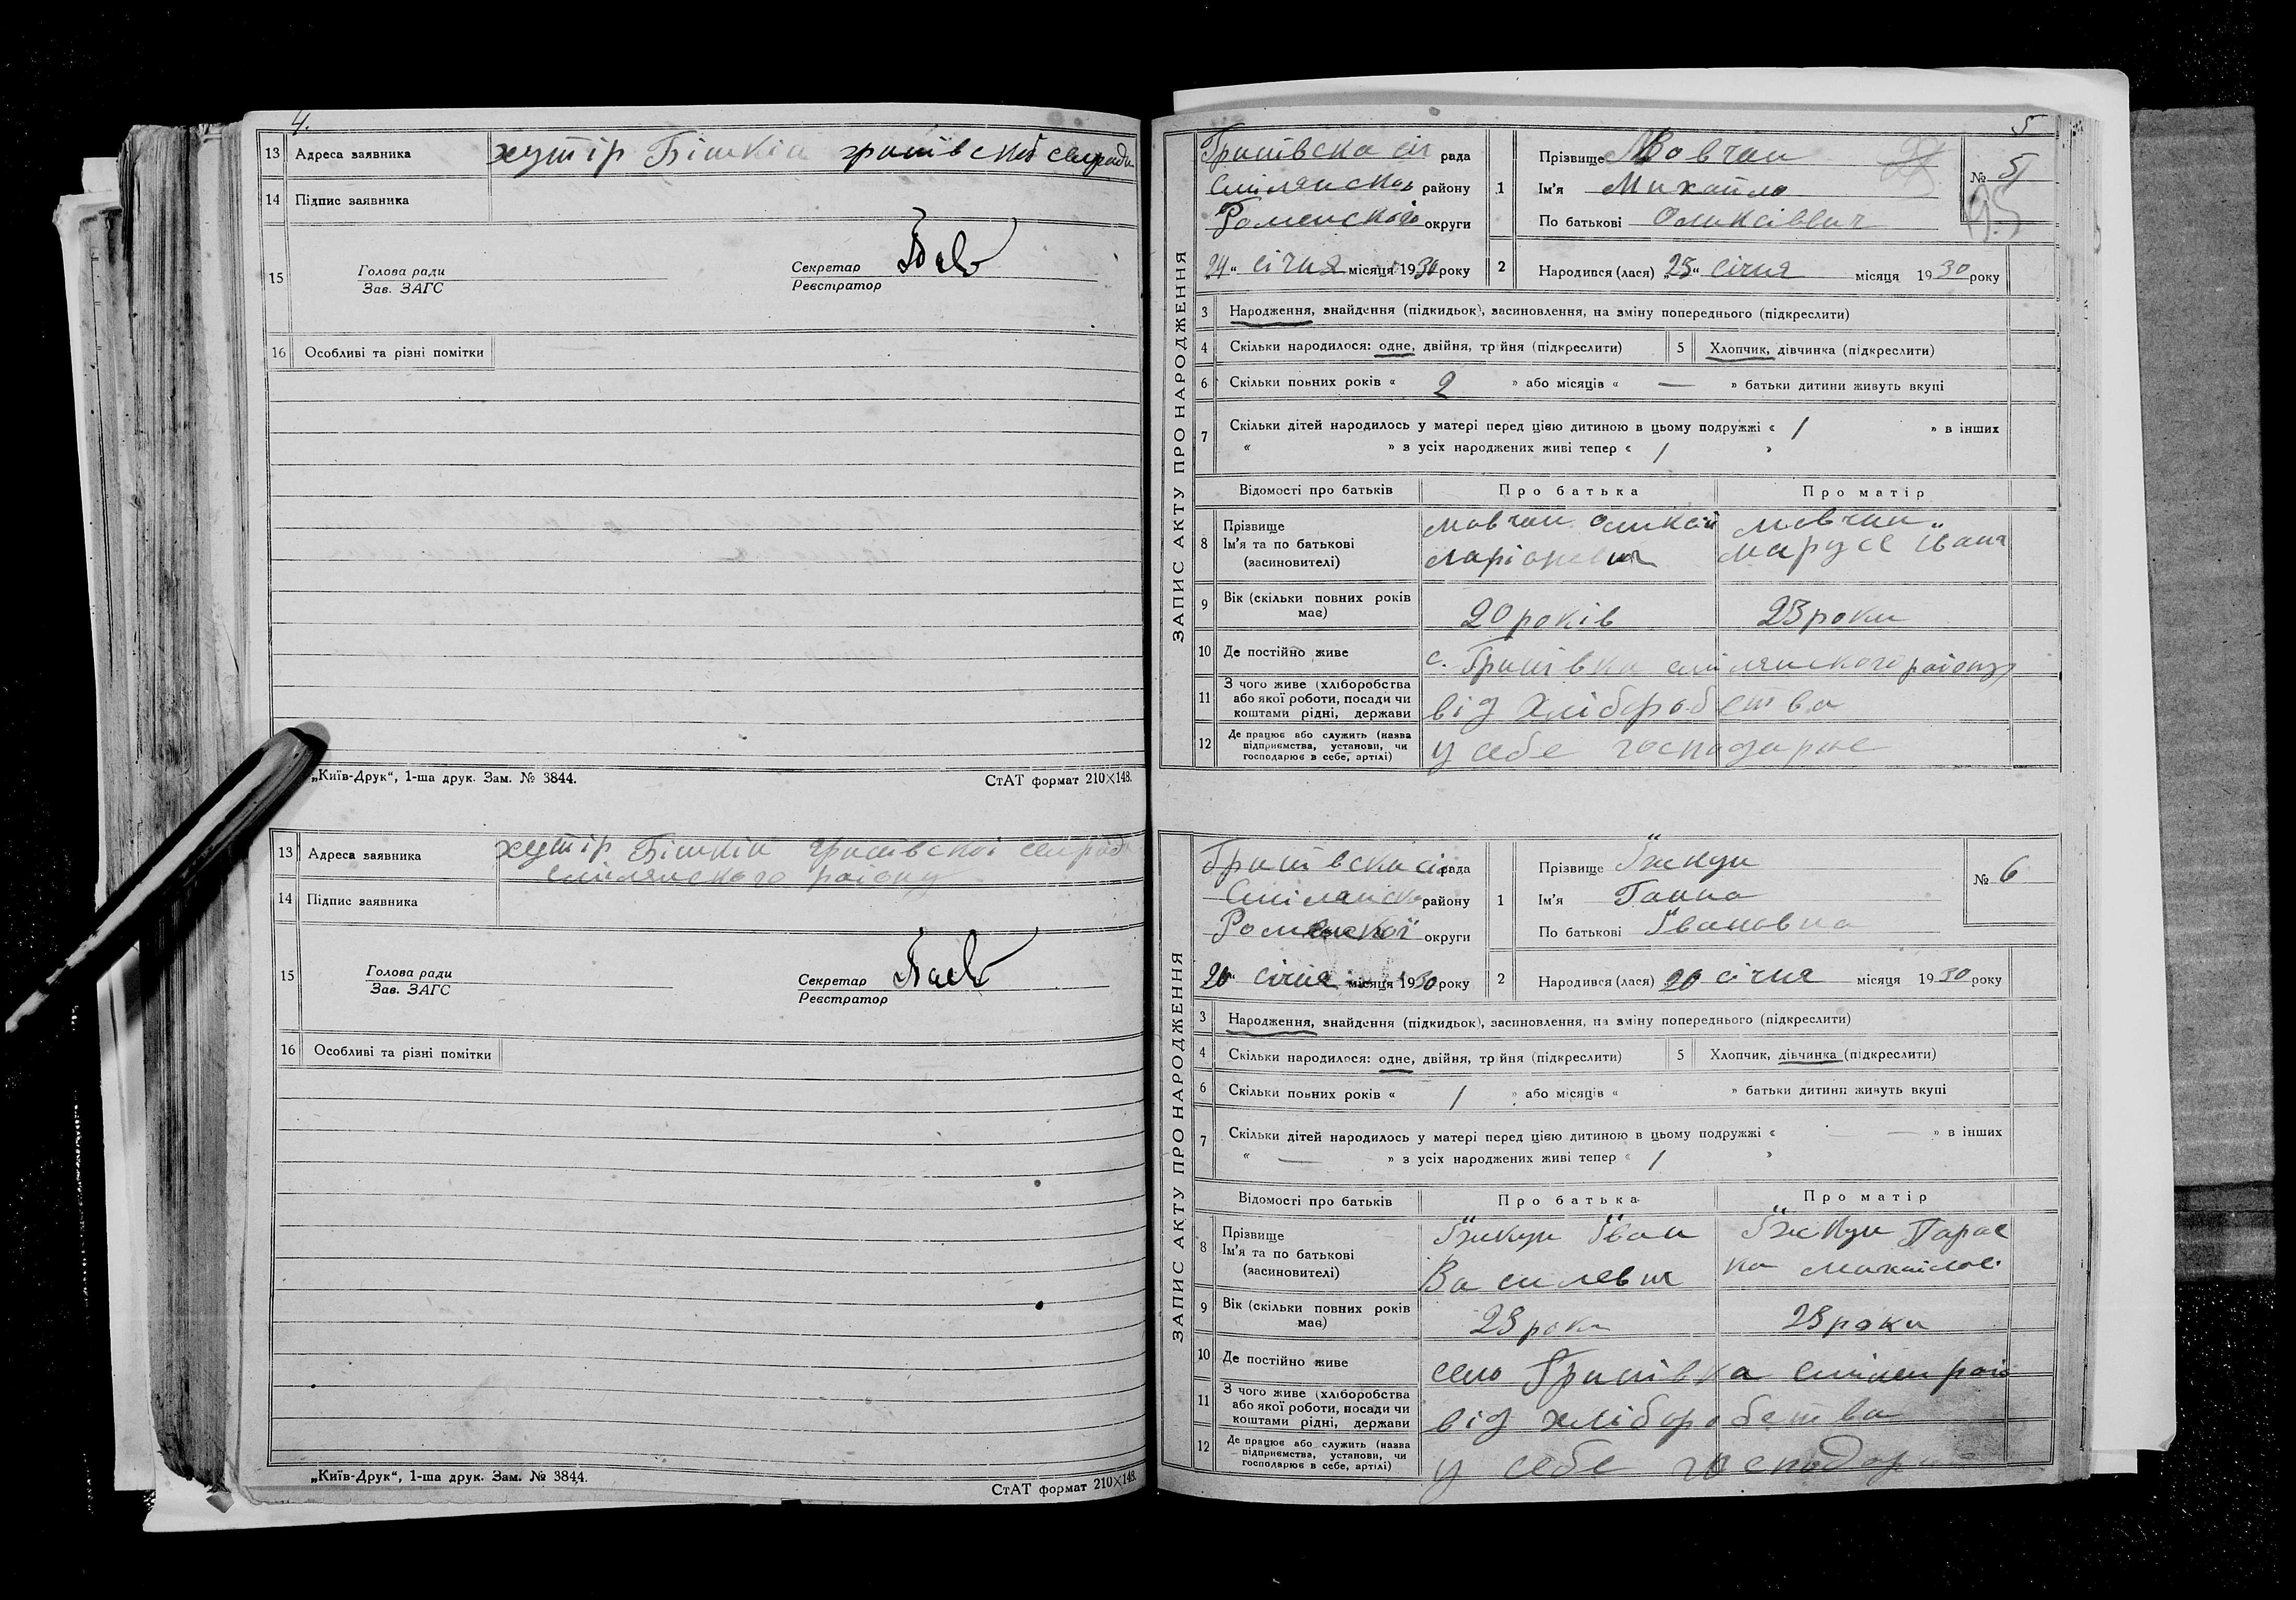 4.
13 Адреса заявника хутір Бішкін
14 Підпис заявника
15 Голова ради
Зав. ЗАГС
Секретар
Реєстратор
16 Особливі та різні помітки
„Київ-Друк“, 1-ша друк. Зам. № 3844.
СтАТ формат 210×148.
13 Адреса заявника хутір Бішкін
смілянского району
14 Підпис заявника
15 Голова ради
Зав. ЗАГС
Секретар
Реєстратор
16 Особливі та різні помітки
„Київ-Друк“, 1-ша друк. Зам. № 3844.
СтАТ формат 210×148.
5
ЗАПИС АКТУ ПРО НАРОДЖЕННЯ
рада
району
округи
24 “ січня місяця 1930 року
1 Прізвище Мовчан
Ім'я Михайло
По батькові Оликсієвич
№ 5
95
2 Народився (лася) „23“ січня місяця 1930 року
3 Народження, знайдення (підкидьок), засиновлення, на зміну попереднього (підкреслити)
4 Скільки народилося: одне, двійня, трійня (підкреслити)
5 Хлопчик, дівчинка (підкреслити)
6 Скільки повних років « 2 » або місяців « — » батьки дитини живуть вкупі
7 Скільки дітей народилось у матері перед цією дитиною в цьому подружжі « 1 » в інших
« » з усіх народжених живі тепер « 1 »
Відомості про батьків Про батька Про матір
8 Прізвище
Ім'я та по батькові
(засиновителі)
Мовчан Оликсій
Ларіонович
Мовчан
Маруся Іван
9 Вік (скільки повних років має) 20 років 23 роки
10 Де постійно живе с. смілянского району
11 З чого живе (хліборобства
або якої роботи, посади чи
коштами рідні, держави
від хліборобства
12 Де працює або служить (назва
підприємства, установи, чи
господарює в себе, артілі)
у себе господарює
ЗАПИС АКТУ ПРО НАРОДЖЕННЯ
рада
району
Роменської округи
20 “ січня місяця 1930 року
1 Прізвище Їжкун
Ім'я Ганна
По батькові Івановна
№ 6
2 Народився (лася) 20 січня місяця 1930 року
3 Народження, знайдення (підкидьок), засиновлення, на зміну попереднього (підкреслити)
4 Скільки народилося: одне, двійня, трійня (підкреслити)
5 Хлопчик, дівчинка (підкреслити)
6 Скільки повних років « 1 » або місяців « » батьки дитини живуть вкупі
7 Скільки дітей народилось у матері перед цією дитиною в цьому подружжі « — » в інших
« — » з усіх народжених живі тепер « 1 »
Відомості про батьків Про батька Про матір
8 Прізвище
Ім'я та по батькові
(засиновителі)
Їжкун Іван
Василевич
Їжкун Парас
ка Михайлов.
9 Вік (скільки повних років має) 23 роки 23 роки
10 Де постійно живе село
11 З чого живе (хліборобства
або якої роботи, посади чи
коштами рідні, держави
від хліборобства
12 Де працює або служить (назва
підприємства, установи, чи
господарює в себе, артілі)
у себе господарює